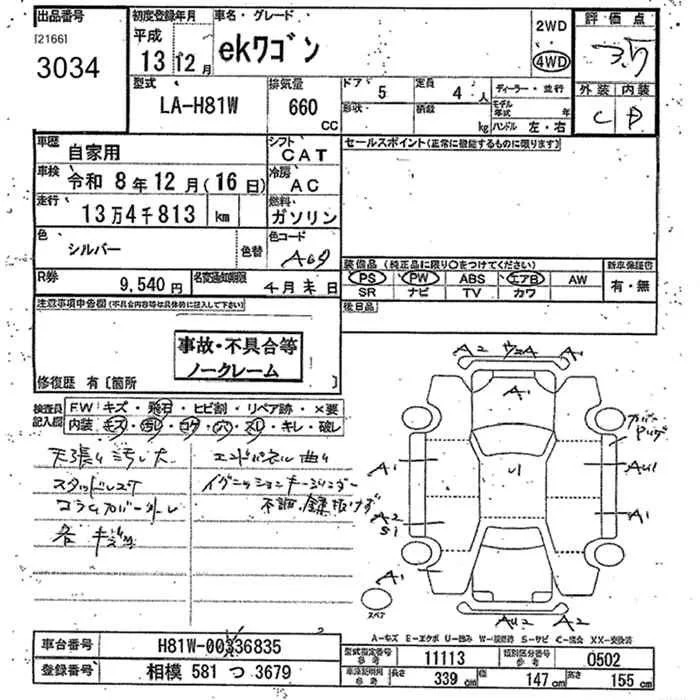 出品番号 初度登録年月 車名・グレード 2WD 評価点
[2166] 平成 ekワゴン 4WD
3034 13 12月 外装 内装
C D
型式 排気量 ドア 5 定員 4 人 ディーラー・並行
LA-H81W 660 CC 形状 積載 kg モデル年式 年
ハンドル 左・右
車歴 自家用 シフト CAT セールスポイント(正常に機能するものに限ります)
車検 令和 8年 12月(16日) 冷房 AC
走行 13万4千813 km 燃料 ガソリン
色 シルバー 色替 色コード A69
装備品(純正品に限り○をつけてください) 新車保証書
R券 9,540円 名変通知期限 4月末日 PS PW ABS エアB AW 有・無
SR ナビ TV カワ
注意事項申告欄(不具合内容等は具体的に記入して下さい) 後日品
事故・不具合等
ノークレーム
修復歴 有[箇所 ]
検査員記入欄 FW キズ・飛石・ヒビ割・リペア跡・×要
内装 キズ・汚レ・コゲ・穴・スレ・キレ・破レ
天張り汚レ大 エンドパネル曲り
スタッドレス イグニッションキーシリンダー
コラムカバー外レ 不調
各キズ
A2 A1
A1
A1 AU1
A2 A1
S1
A1
スペア AU2 A2
A-キズ E-エクボ U-凹み W-補修跡 S-サビ C-腐食 XX-交換済
車台番号 H81W-0036835 型式指定番号 参考 11113 類別区分番号 参考 0502
登録番号 相模 581 つ 3679 車検証明用 参考 長さ 339 cm 幅 147 cm 高さ 155 cm